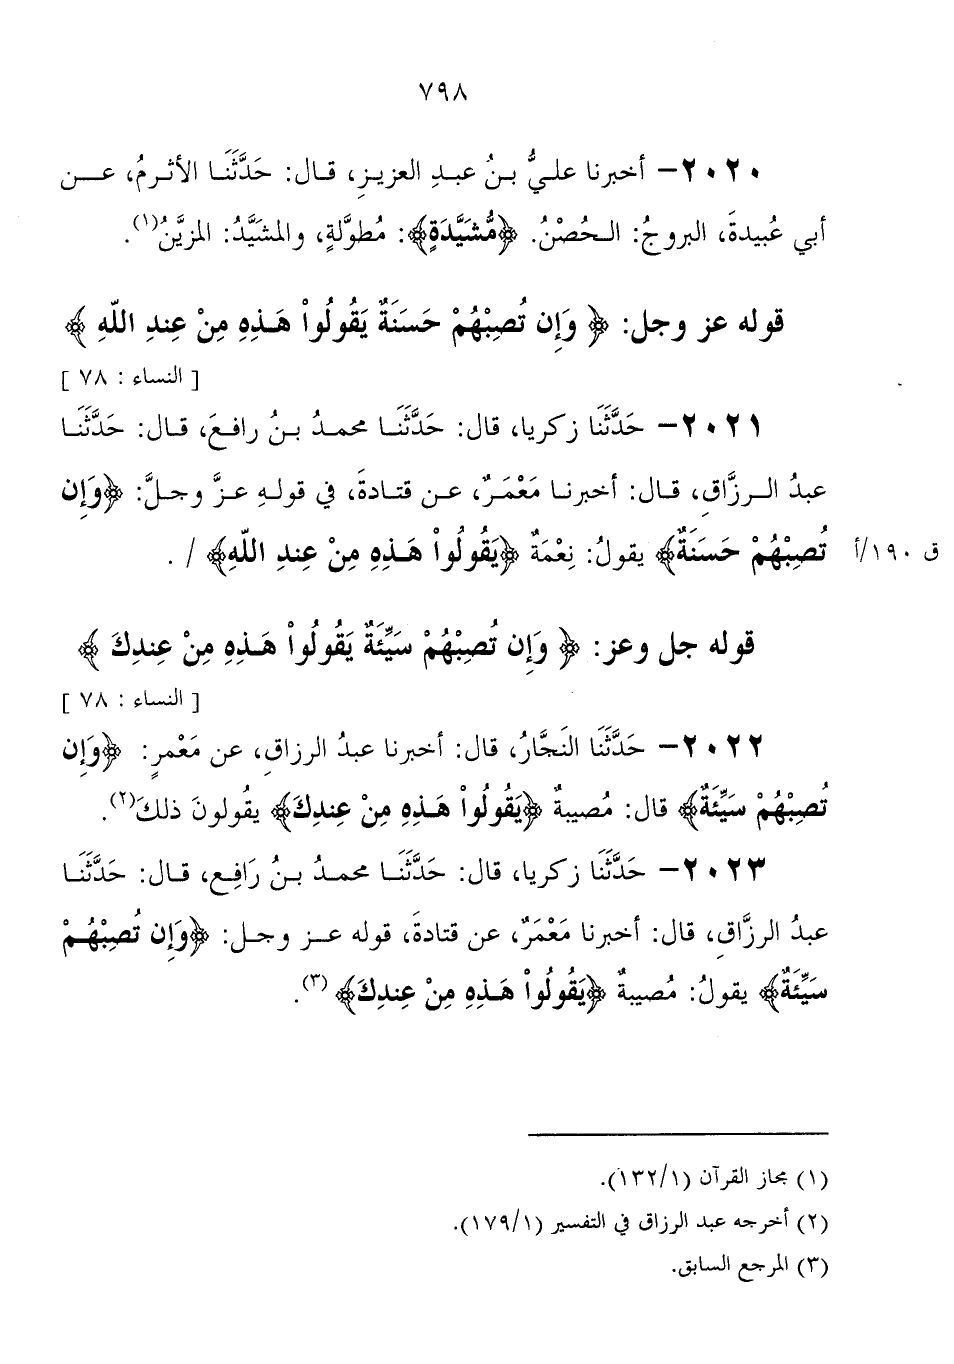 ٧٩٨
٢٠٢٠- أخبرنا عليُّ بنُ عبدِ العزيزِ، قال: حَدَّثَنَا الأثرمُ، عن
أبي عُبيدةَ، البروجُ: الحُصْنُ. ﴿مُّشَيَّدَةٍ﴾: مُطوَّلةٍ، والمشيَّدُ: المزيَّنُ(١).
قوله عز وجل: ﴿ وَإِن تُصِبْهُمْ حَسَنَةٌ يَقُولُواْ هَـذِهِ مِنْ عِندِ اللّهِ ﴾
[ النساء : ٧٨ ]
٢٠٢١- حَدَّثَنَا زكريا، قال: حَدَّثَنَا محمدُ بنُ رافعَ، قال: حَدَّثَنَا
عبدُ الرزَّاقِ، قال: أخبرنا مَعْمَرٌ، عن قتادةَ، في قولهِ عزَّ وجلَّ: ﴿وَإِن
تُصِبْهُمْ حَسَنَةٌ﴾ يقولُ: نِعْمَةٌ ﴿يَقُولُواْ هَـذِهِ مِنْ عِندِ اللّهِ﴾ / .
ق ١٩٠/أ
قوله جل وعز: ﴿ وَإِن تُصِبْهُمْ سَيِّئَةٌ يَقُولُواْ هَـذِهِ مِنْ عِندِكَ ﴾
[ النساء : ٧٨ ]
٢٠٢٢- حَدَّثَنَا النَجَّارُ، قال: أخبرنا عبدُ الرزاقِ، عن مَعْمرٍ: ﴿وَإِن
تُصِبْهُمْ سَيِّئَةٌ﴾ قال: مُصيبةٌ ﴿يَقُولُواْ هَـذِهِ مِنْ عِندِكَ﴾ يقُولونَ ذلكَ(٢).
٢٠٢٣- حَدَّثَنَا زكريا، قال: حَدَّثَنَا محمدُ بنُ رَافِع، قال: حَدَّثَنَا
عبدُ الرزَّاقِ، قال: أخبرنا مَعْمَرٌ، عن قتادةَ، قوله عز وجل: ﴿وَإِن تُصِبْهُمْ
سَيِّئَةٌ﴾ يقولُ: مُصيبةٌ ﴿يَقُولُواْ هَـذِهِ مِنْ عِندِكَ﴾(٣).
(١) مجاز القرآن (١٣٢/١).
(٢) أخرجه عبد الرزاق في التفسير (١٧٩/١).
(٣) المرجع السابق.